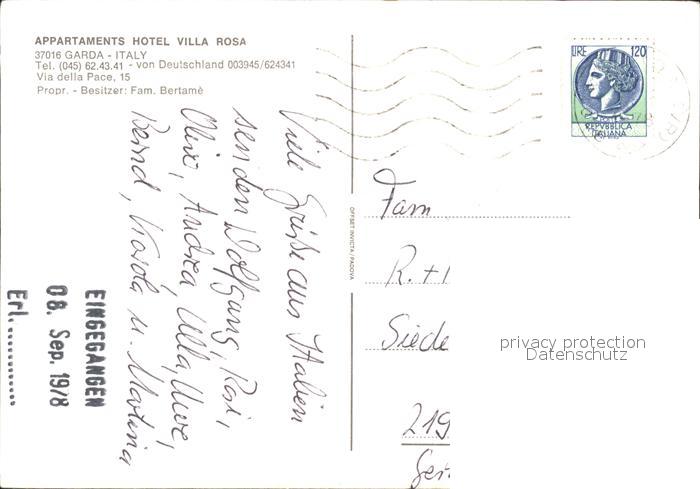 APPARTAMENTS HOTEL VILLA ROSA
37016 GARDA - ITALY
Tel. (045) 62.43.41 - von Deutschland 003945/624341
Via della Pace, 15
Propr. - Besitzer: Fam. Bertamè
Viele Grüße aus Italien
senden Wolfgang, Rosi,
Oliver, Andrea, Ulla, Uwe,
Bernd, Karola u. Martina
EINGEGANGEN
08. Sep. 1978
Erl. ............
OFFSET INVICTA / PADOVA
LIRE 120
REPVBBLICA
ITALIANA
Fam
R. + I
Siede
privacy protection
Datenschutz
219